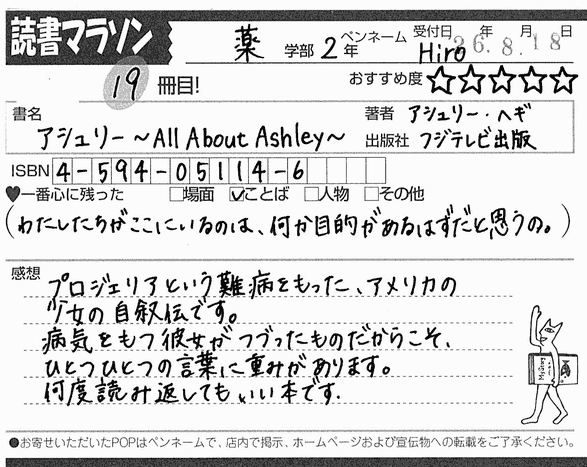 読書マラソン
薬 学部 2 年 ペンネーム Hiro 受付日 26.8.18 年 月 日
19 冊目! おすすめ度 ☆☆☆☆☆
書名 アシュリー〜All About Ashley〜
著者 アシュリー・ヘギ
出版社 フジテレビ出版
ISBN 4-594-05114-6
♥一番心に残った □場面 ☑ことば □人物 □その他
(わたしたちがここにいるのは、何か目的があるはずだと思うの。)
感想 プロジェリアという難病をもった、アメリカの
少女の自叙伝です。
病気をもつ彼女がつづったものだからこそ、
ひとつひとつの言葉に重みがあります。
何度読み返してもいい本です.
●お寄せいただいたPOPはペンネームで、店内で掲示、ホームページおよび宣伝物への転載をご了承ください。